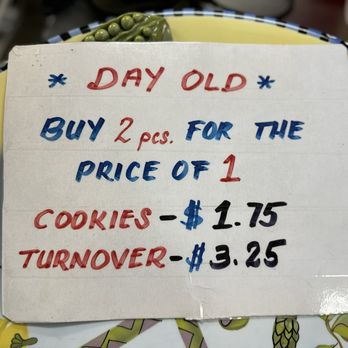 * DAY OLD *
BUY 2 pcs. FOR THE
PRICE OF 1
COOKIES - $ 1.75
TURNOVER - $ 3.25